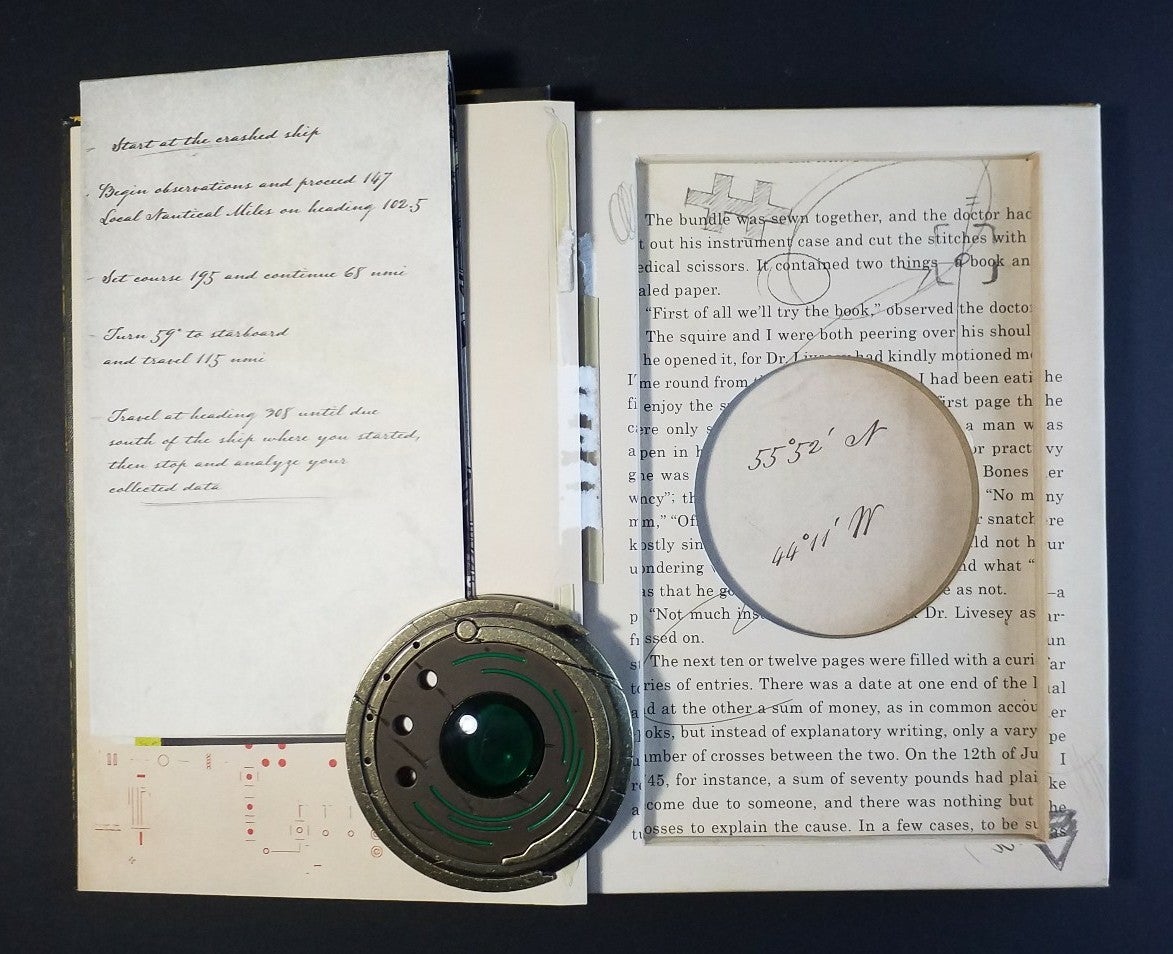 Start at the crashed ship
Begin observations and proceed 147
Local Nautical Miles on heading 102.5
Set course 195 and continue 68 nmi
Turn 59° to starboard
and travel 115 nmi
Travel at heading 308 until due
south of the ship where you started,
then stop and analyze your
collected data
The bundle was sewn together, and the doctor had
out his instrument case and cut the stitches with
medical scissors. It contained two things—a book an
aled paper.
“First of all we’ll try the book,” observed the docto
The squire and I were both peering over his shoul
he opened it, for Dr. Livesey had kindly motioned m
me round from I had been eati
enjoy the first page th
re only a man w
pen in h or pract
e was Bones
ncy”; th “No m
m,” “Of snatch
stly sin ld not h
ndering nd what “
as that he go e as not.
“Not much ins Dr. Livesey as
ssed on.
The next ten or twelve pages were filled with a curi
ries of entries. There was a date at one end of the l
nd at the other a sum of money, as in common accou
oks, but instead of explanatory writing, only a vary
umber of crosses between the two. On the 12th of Ju
’45, for instance, a sum of seventy pounds had plai
come due to someone, and there was nothing but
osses to explain the cause. In a few cases, to be su
55°52′ N
44°11′ W